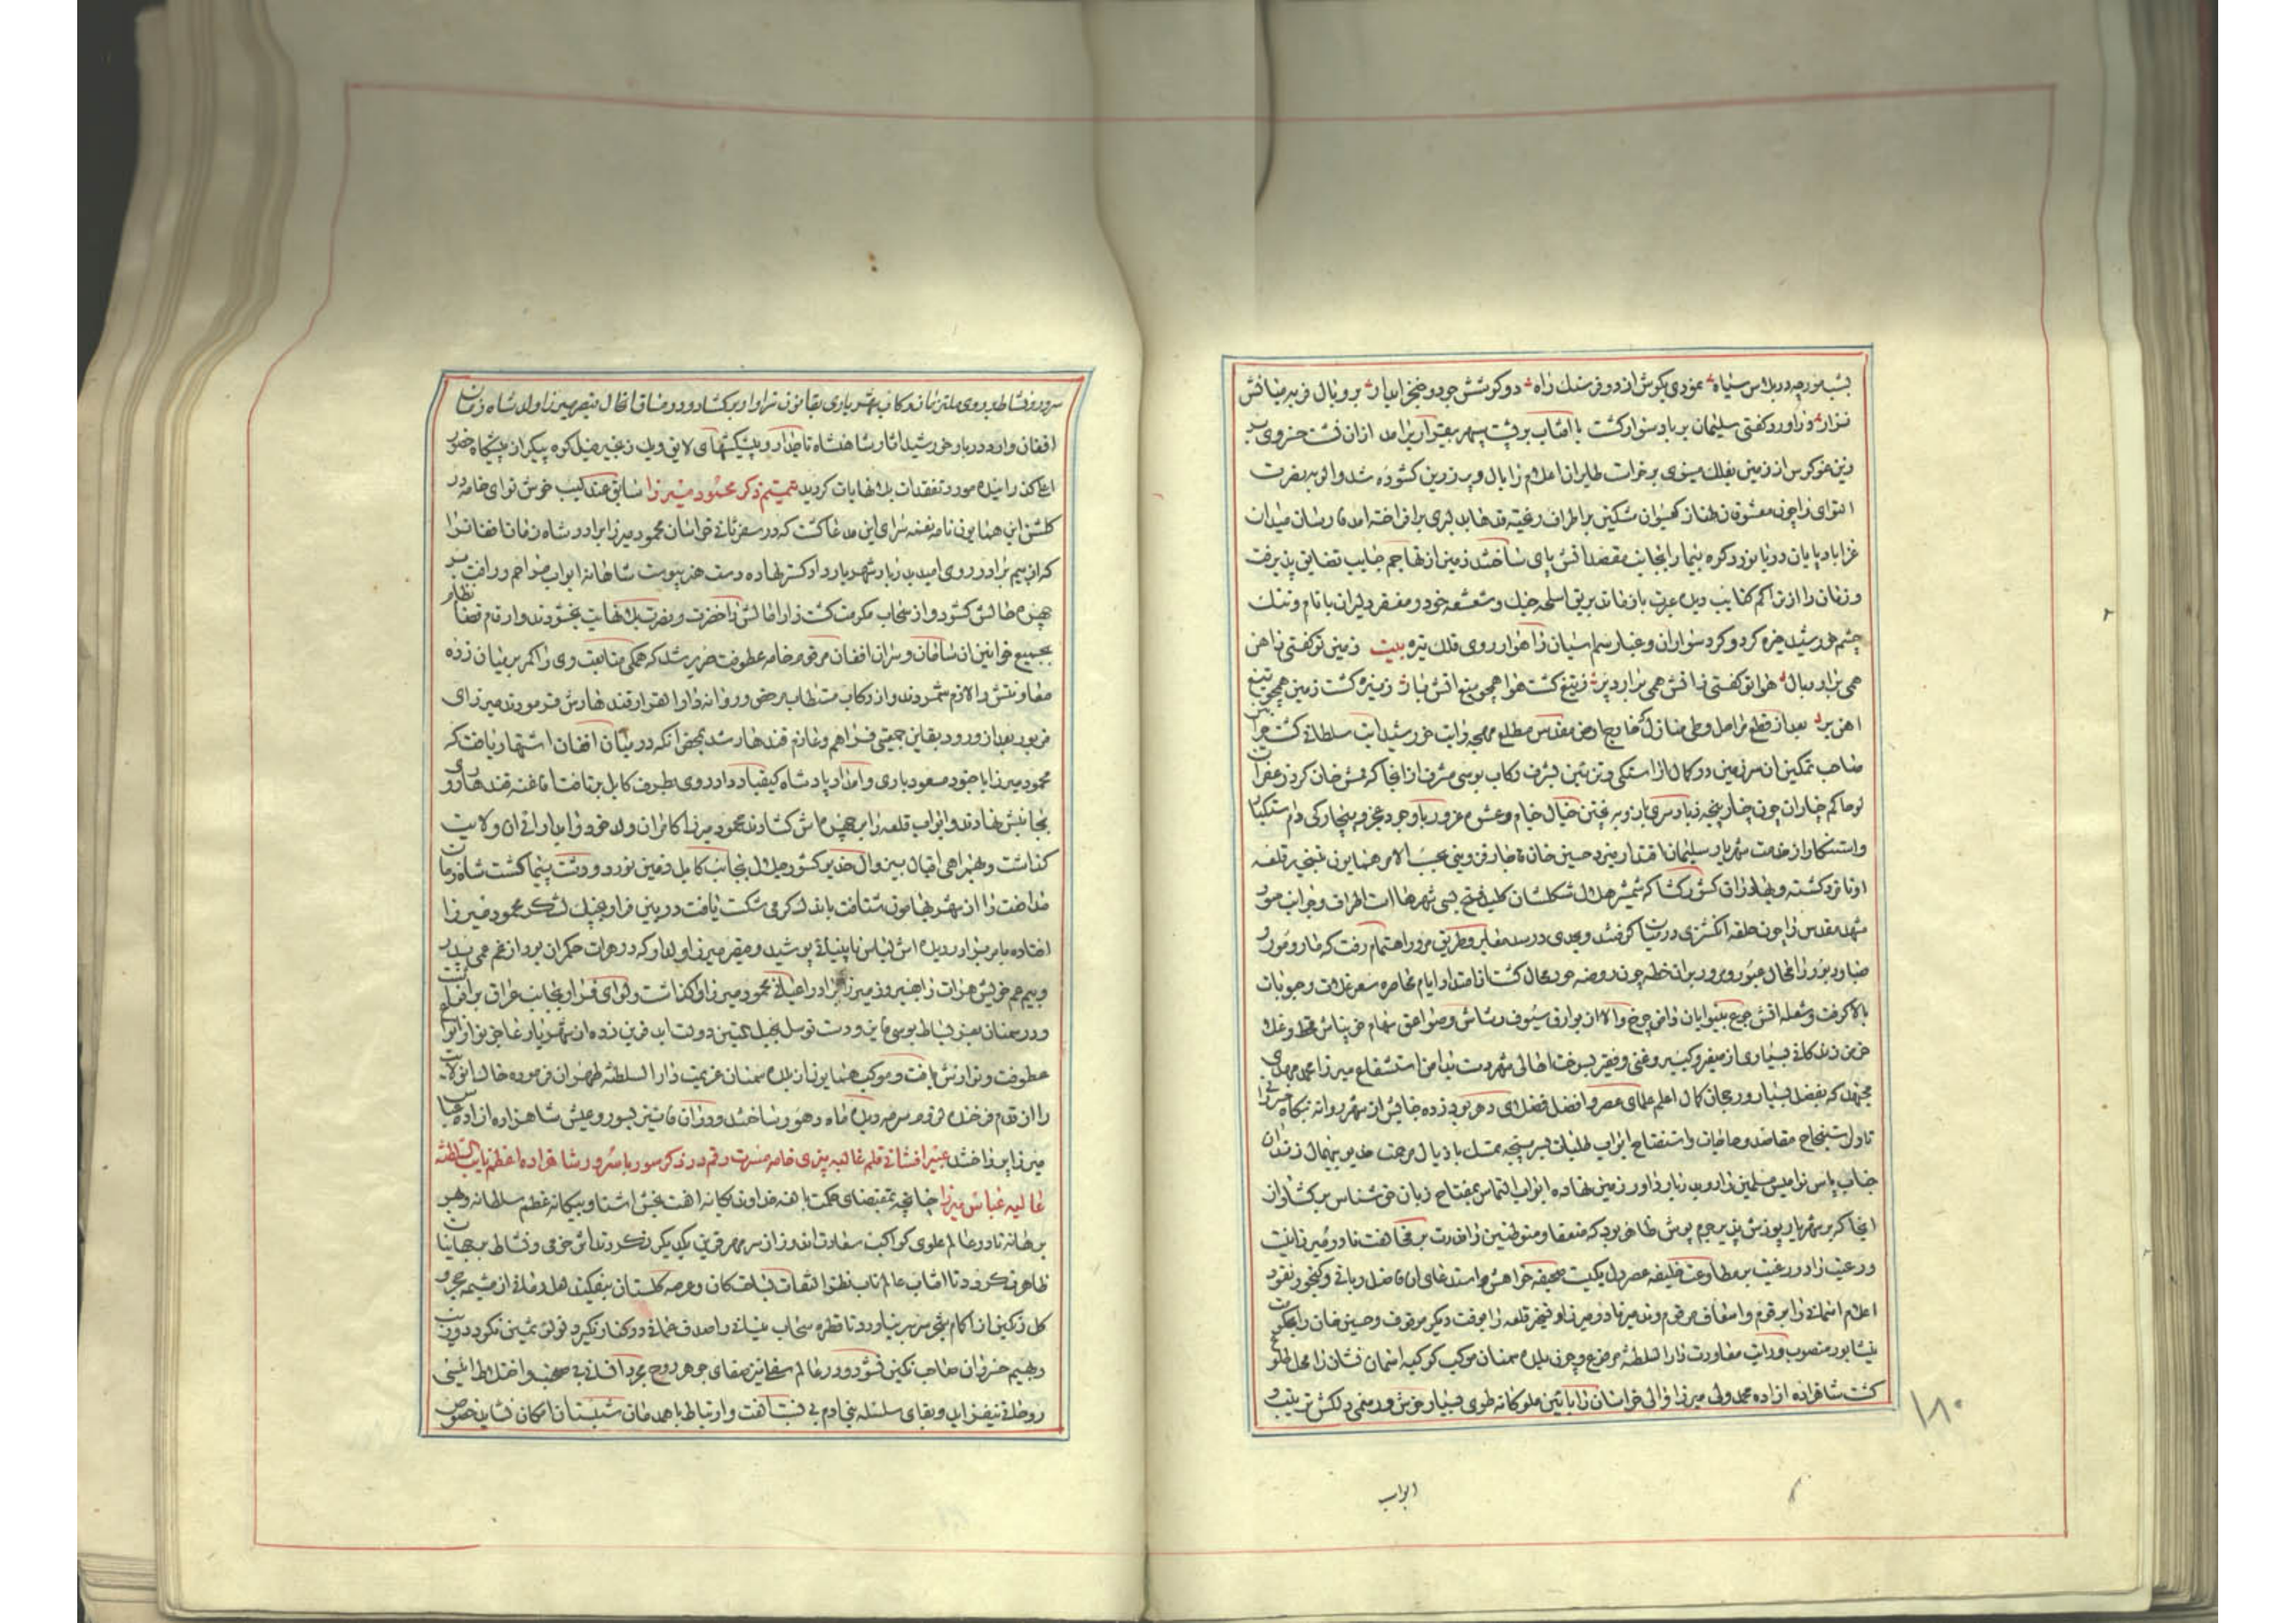 بشب مورچه در پلاس سیاه عمودی بکوش از دو فرسنک راه دو کوشش چو دو خنجر ابدار بر و یال فربه میانش
نزار و داور کفتی سلیمان بر باد سوار کشت یا افتاب بر سپهر بیقرار برامد ازان
زمین بفلک مینوی بر خواست طایران اعلام را بال و پر زرین کشوده شد
التوای را چون معشوقان طناز کیسوان مشکین بر اطراف ریخته قد بدلبری بر افراخته امد فارسان میدان
غزا باد پایان دریا نورد کوه پیما را بجانب مقصد اتش پای ساختند زمین از تهاجم جنایب تضایق پذیرفت
و زمان را از تراکم کتایب دیده عبرت باز ماند بریق اسلحه جنک و شعشعه خود و مغفر دلیران با نام و ننک
چشم خورشید خیره کرد و کرد سواران و غبار سم اسبان راهوار روی فلک تیره بیت زمین تو کفتی ز اهن
همی برارد بال هوا تو کفتی ز اتش همی برارد پر ز تیغ کشت هوا همچو اتش بار ز نیزه کشت زمین همچو تیغ
اهن بر بعد از قطع مراحل و طی منازل خارج ارض مقدس مطلع مهجه رایت خورشید ایت سلطانی کشت
صاحب تمکین ان سرزمین در کمال اراستکی و تزیین بشرف رکاب بوسی مشرف از انجا که ممش خان کرد زعفرانلو
حاکم چناران چون چنار پنجه زیاده سری باز و به پختن خیال خام با وجود عجز و بیچارکی دم استکبار
و استنکار از خدمت شهریار سلیمان اقتدار میزد حسین خان قاجار قزوینی بحسب الامر همایون بتسخیر قلعه
او نامزد کشته و بهادران کشورکشا که شمشیر هلال شکلشان کلید فتح بسی شهرهاست اطراف و جوانب
مشهد مقدس را چون حلقه انکشتری در میان کرفتند و بحدی در سد معابر و طریق مرور اهتمام رفت که مار و مور و
صبا و دبور را مجال عبور و مرور بران خطه چون روضه حور محال کشت از امتداد ایام محاصره سعر غلات و حبوبات
بالا کرفت و شعله اتش جوع بینوایان دامن چرخ والا از بوارق سیوف و صواعق سهام
خرمن زندکانی بسیاری از صغیر و کبیر و غنی و فقیر بسوخت اهالی شهر دست بدامن استشفاع میرزا محمد مهدی
مجتهد که بفضل بسیار و رجحان کمال اعلم علمای عصر و افضل فضلای دهر بود زده جنابش از شهر روانه
تا دل استنجاح مقاصد و حاجات و استفتاح ابواب طلبات بسر پنجه تمسک باذیال مرحمت خدیو بیهمال زند ان
جناب پاس نوامیس مسلمین را روبروی داور زمین نهاده ابواب التماس بمفتاح زبان حق شناس بر کشاد از
انجا که بر شهریار پوزش پذیر جرم پوش ظاهر بود که متوطنین را قدرت بر مخالفت نادر میرزا نیست
و رعیت را در رغبت بر مطاوعت خلیفه عصر دل یکیست صحیفه خواهش و استدعای ان فاضل ربانی
اعلام را بر قوم و اسعاف مرقوم و تدمیر نادر میرزا و تسخیر قلعه را بوقت دیکر موقوف و حسین خان را بحکومت
نیشابور منصوب و رایت معاودت دار السلطنه مرفوع و چون بلده سمنان موکب کوکبه اسمان نشان را محل طلوع
کشت شاهزاده ازاده محمد ولی میرزا والی خراسان را با ایین ملوکانه طوی بسیار خوش و در دلکش ترتیب و
ابواب
۱۸۰
سرور و نشاط بر روی ملتزمان رکاب شهریاری بقانون سزاوار بر کشاد و در خلال اینحال قیصر میرزا ولد شاه زمان
افغان وارد دربار خورشید اثار شاهنشاه تاجدار و پیشکشهای لایق و یک زنجیر فیل کوه پیکر از پیشکاه حضور
اعلی کذرانیده مورد تفقدات بلا نهایات کردید تتمیم ذکر محمود میرزا سابق عندلیب خوش نوای خامه در
کلشن این همایون نامه نغمه سرای این مدعا کشت که در سفر ثانی خراسان محمود میرزا برادر شاه زمان افغان را
که از بیم برادر روی امید بدربار شهریار داد کستر نهاده دست ابواب مراحم و رافت بر
چهره حالش کشود و از سحاب مکرمت کشت زار امالش را خضرت و نضرت بلا نهایت بخشودند و ارقام قضا نظام
بجمیع خوانین ان سامان و سران افغان مرقوم خامه عطوفت تحریر شد که همکی متابعت وی را کمر بر میان زده
معاونتش را لازم شمردند و از رکاب مستطاب مرخص و روانه دار القرار قندهارش فرمودند میرزای
مزبور بعد از ورود بقاین جمعیتی فراهم و عازم قندهار شد بمحض انکه در میان افغان اشتهار یافت که
محمود میرزا با جنود مسعود یاری و امداد پادشاه کیقباد داد روی بطرف کابل بر تافت قاطبه قندهار روی
بجانبش نهادند و ابواب قلعه را بر چهره اش کشادند محمود میرزا کامران ولد خود را بدارائی ان ولایت
کذاشت و بهمراهی اقبال بیزوال خدیو کشور جلال بجانب کابل زمین نورد و دشت پیما کشت شاه زمان
مدافعت را از شهر بهامون شتافت باندک کرمی شکست یافت در حین فرار بچنک لشکر محمود میرزا
افتاده بامر برادر دیده اش لباس نابینائی پوشید و قیصر میرزا ولد او که در هرات حکمران بود از غم عمی پدر
و بیم عم خویش هرات را بفیروز میرزا برادر اعیانی محمود میرزا واکذاشت و لوای فرار بجانب عراق بر افراشت
و در سمنان بعز بساط بوسی فایز و دست توسل بحبل المتین دولت ابد قرین زده از شهریار عاجز نواز انواع
عطوفت و نوازش یافت و موکب همایون از بلده سمنان عزیمت دار السلطنه طهران فرموده خاک ان ولایت
را از قدم فرخنده لزوم سرمه دیده ماه و هور ساختند و در ان بسور و عیش شاهزاده ازاده عباس
میرزا پرداختند عنبر افشانی قلم غالیه بیزی خامه مسرت رقم در ذکر سور با سرور شاهزاده اعظم نایب السلطنه
عالیه عباس میرزا چنانچه بمقتضای حکمت بالغه خداوند یکانه الفت بخش اشنا و بیکانه عظم سلطانه و بهر
برهانه تا در عالم علوی کواکب سعادت اندوز از سر مهر قرین یکدیکر نکردند اثر خرمی و نشاط بر جهانیان
ظاهر نکردد تا افتاب عالم تاب نظر التفات بساحت کان و عرصه کلستان نیفکند لعل رمانی از مشیمه حجر و
کل رنکین از اکام شجر سر بر نیاورد تا قطره سحاب نیسانی را صدف عمانی در کنار نکیرد لولوی ثمین نکردد و زینت
دیهیم خسروان صاحب نکین نشود و در عالم سفلی جوهر روح مجرد افلاکی صحبت و اختلاط انیسی
روحانی نیفزاید و بقای سلسله بنی ادم بی مناسبت الفت و ارتباط با همدمان شبستان امکان نشاید خصوص